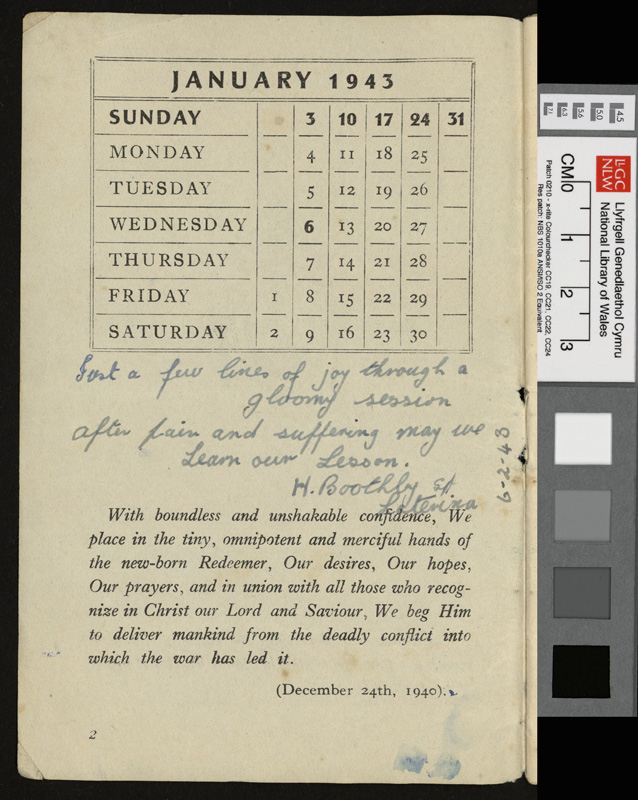 JANUARY 1943
SUNDAY 3 10 17 24 31
MONDAY 4 11 18 25
TUESDAY 5 12 19 26
WEDNESDAY 6 13 20 27
THURSDAY 7 14 21 28
FRIDAY 1 8 15 22 29
SATURDAY 2 9 16 23 30
Just a few lines of joy through a
gloomy session
after pain and suffering may we
Learn our Lesson.
H. Boothby
6-2-43
With boundless and unshakable confidence, We
place in the tiny, omnipotent and merciful hands of
the new-born Redeemer, Our desires, Our hopes,
Our prayers, and in union with all those who recog-
nize in Christ our Lord and Saviour, We beg Him
to deliver mankind from the deadly conflict into
which the war has led it.
(December 24th, 1940).
2
4.5
5.0
5.6
6.3
7.1
LlGC
NLW
Llyfrgell Genedlaethol Cymru
National Library of Wales
CM 0 1 2 3
Patch 0210 - x-rite Colourchecker CC19, CC21, CC22, CC24
Res patch: NBS 1010a ANSI/ISO 2 Equivalent